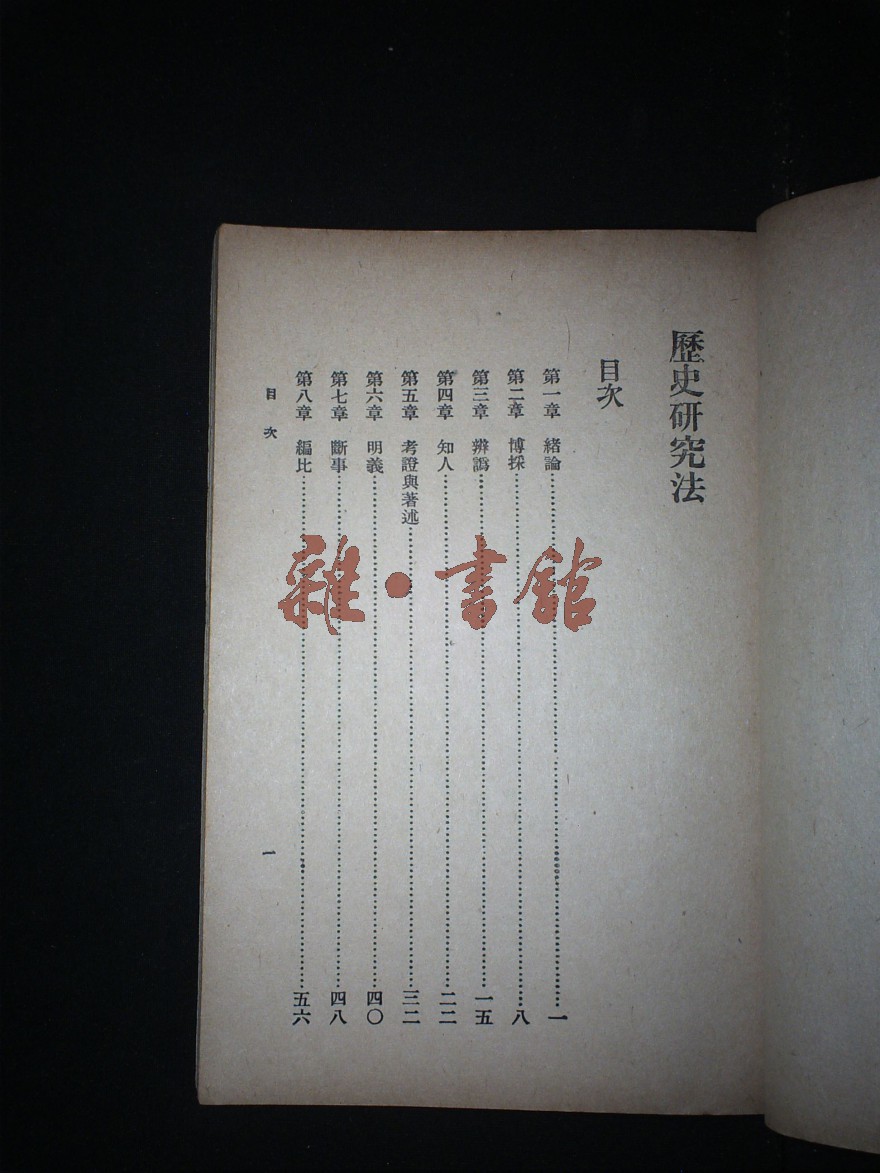 歷史研究法
目次
第一章 緒論…………一
第二章 博採…………八
第三章 辨譌…………一五
第四章 知人…………二二
第五章 考證與著述…………三二
第六章 明義…………四〇
第七章 斷事…………四八
第八章 編比…………五六
目次 一
雜·書館